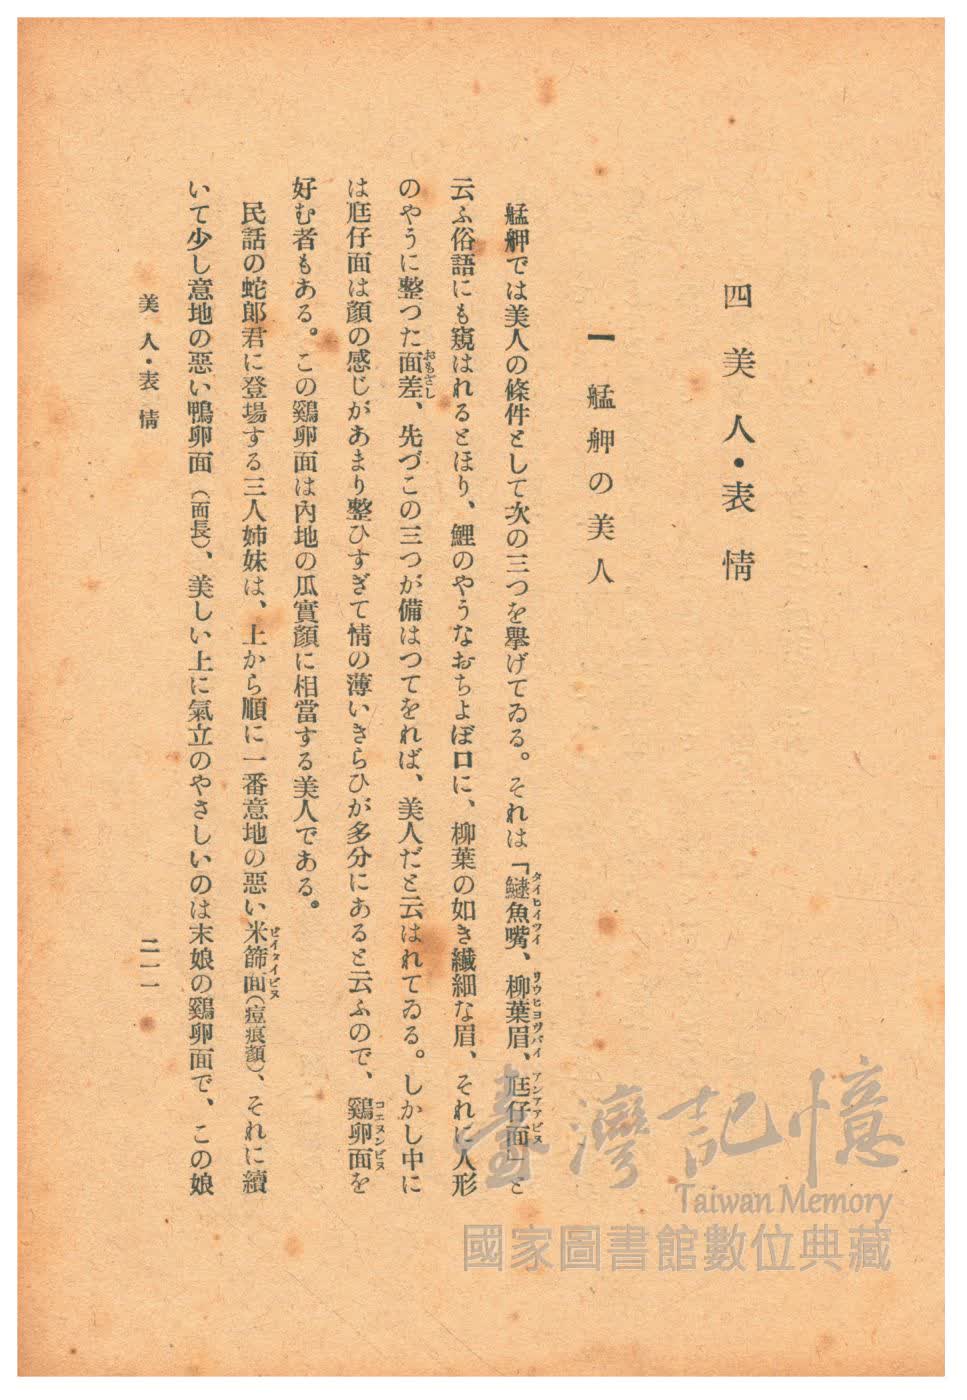 四 美人・表情
一 艋舺の美人
艋舺では美人の條件として次の三つを擧げてゐる。それは「鰱魚嘴、柳葉眉、尪仔面」と
タイヒイツイ リウヒヨウバイ アンアアビヌ
云ふ俗語にも窺はれるとほり、鯉のやうなおちよぼ口に、柳葉の如き纎細な眉、それに人形
のやうに整つた面差、先づこの三つが備はつてをれば、美人だと云はれてゐる。しかし中に
おもざし
は尪仔面は顏の感じがあまり整ひすぎて情の薄いきらひが多分にあると云ふので、鷄卵面を
コエヌンビヌ
好む者もある。この鷄卵面は內地の瓜實顏に相當する美人である。
民話の蛇郎君に登場する三人姉妹は、上から順に一番意地の惡い米篩面(痘痕顏)、それに續
ビイタイビヌ
いて少し意地の惡い鴨卵面(面長)、美しい上に氣立のやさしいのは末娘の鷄卵面で、この娘
美人・表情
二一一
臺灣記憶
Taiwan Memory
國家圖書館數位典藏